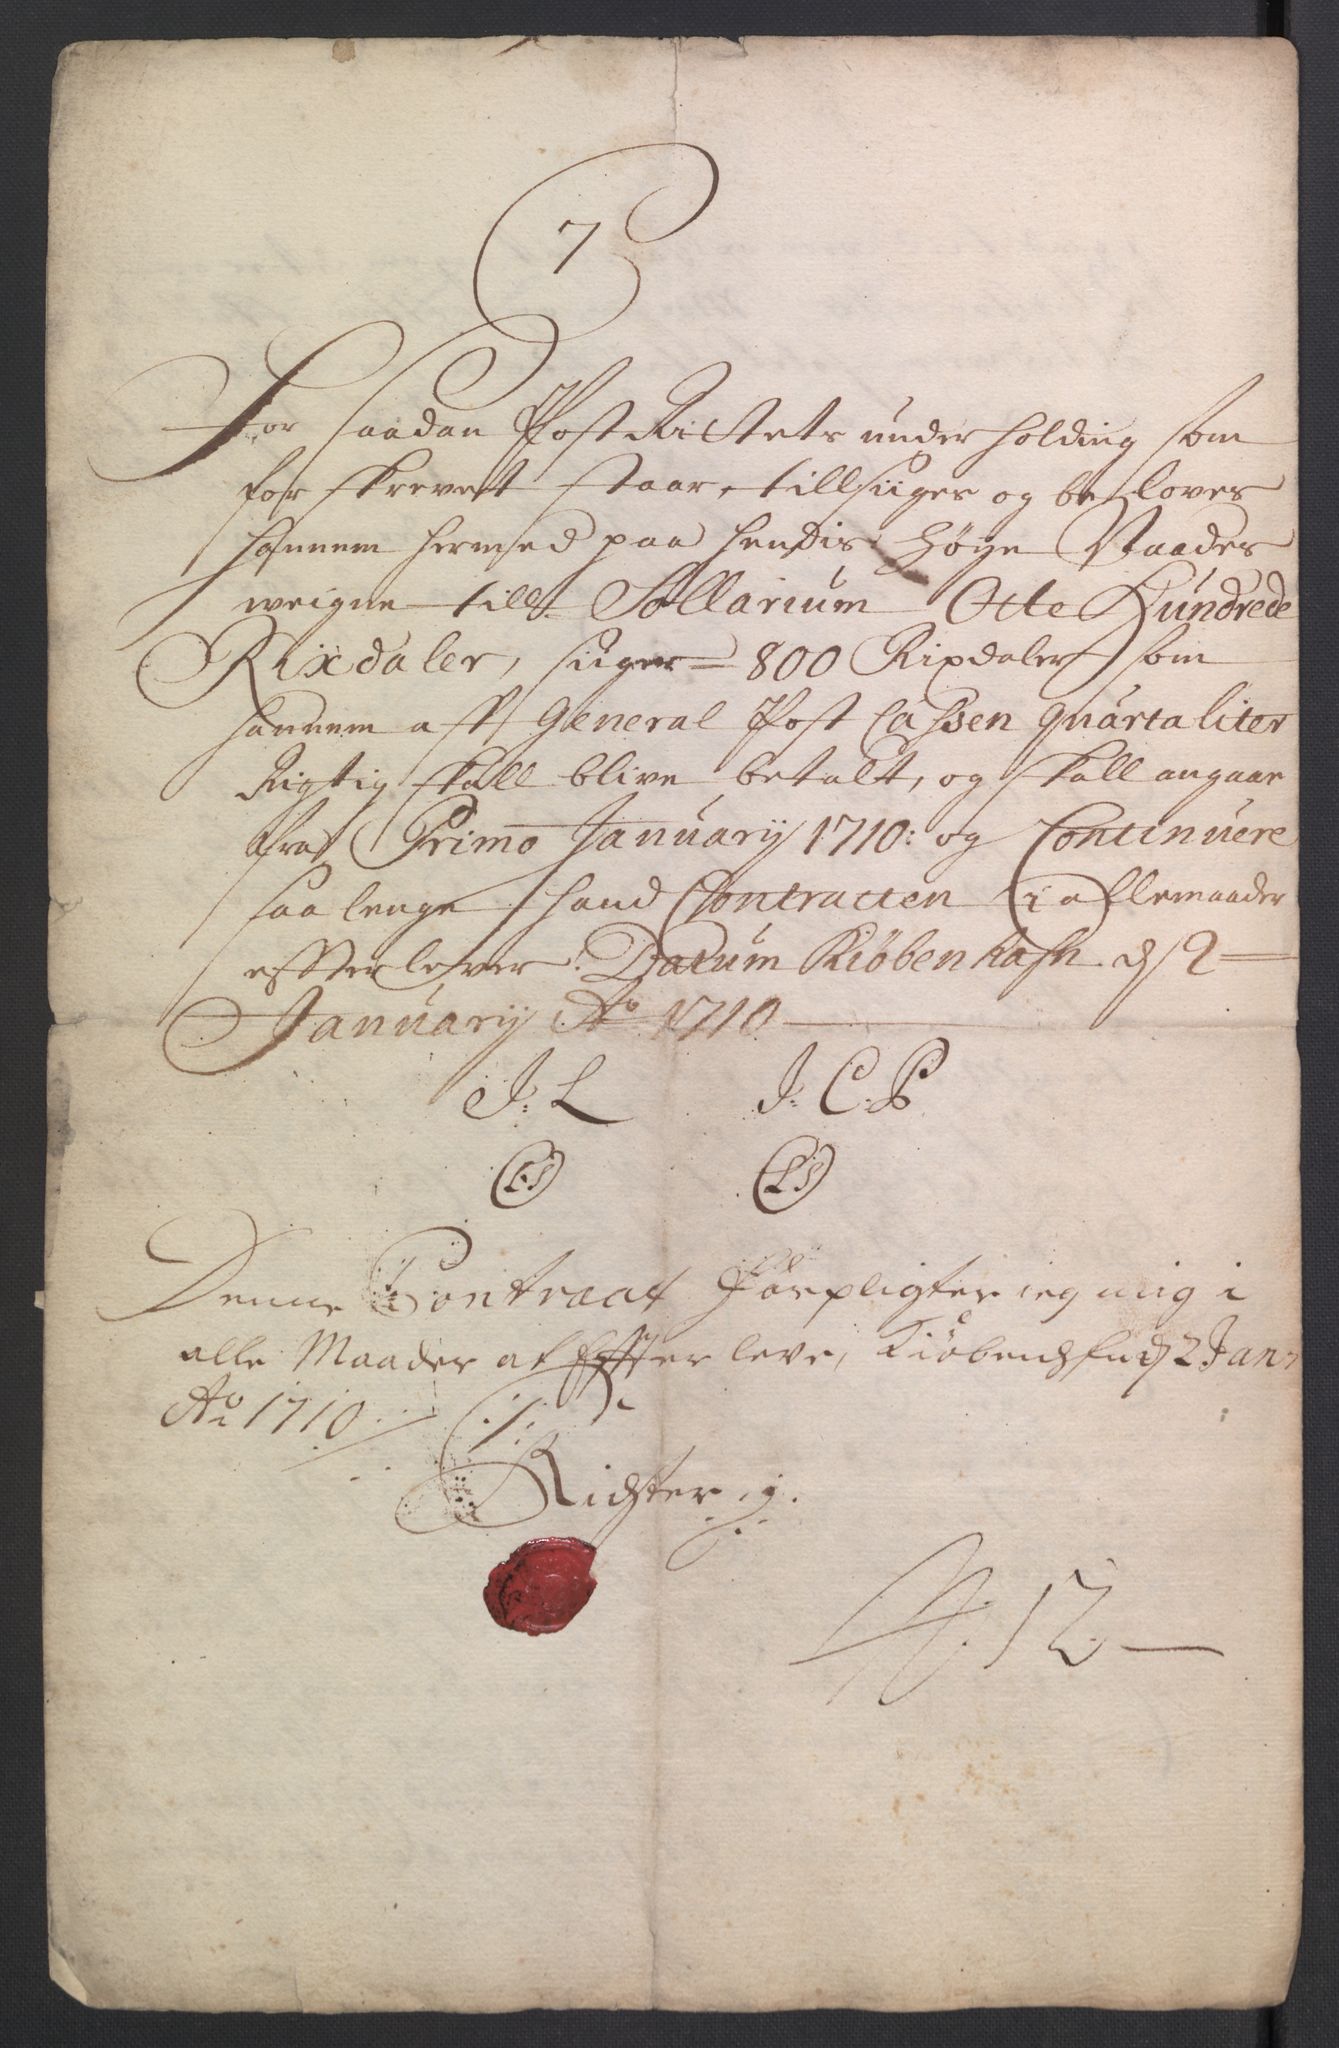 7
For saadan Post Rittets underholding som
forskrevet staar, tillsiiges og beloves
hannem hermed paa hendis Høye Naades
weigne till Sallarium Otte Hundrede
Rixdaler, siiger 800 Rixdaler som
hannem aff General Post Cassen Quartaliter
Rigtig skall blive betalt, og skall angaae
fra Primo Januarij 1710: og Continuere
saa lenge hand Contracten i allemaader
effterlever. Datum Kiøbenhafn d 2
Januarij Ao 1710
J: L J: C: P
LS LS
Denne Contract forpligter ieg mig i
alle Maader at Effterleve, Kiøbenhfn d 2 Jan:
Ao 1710
Richter
12